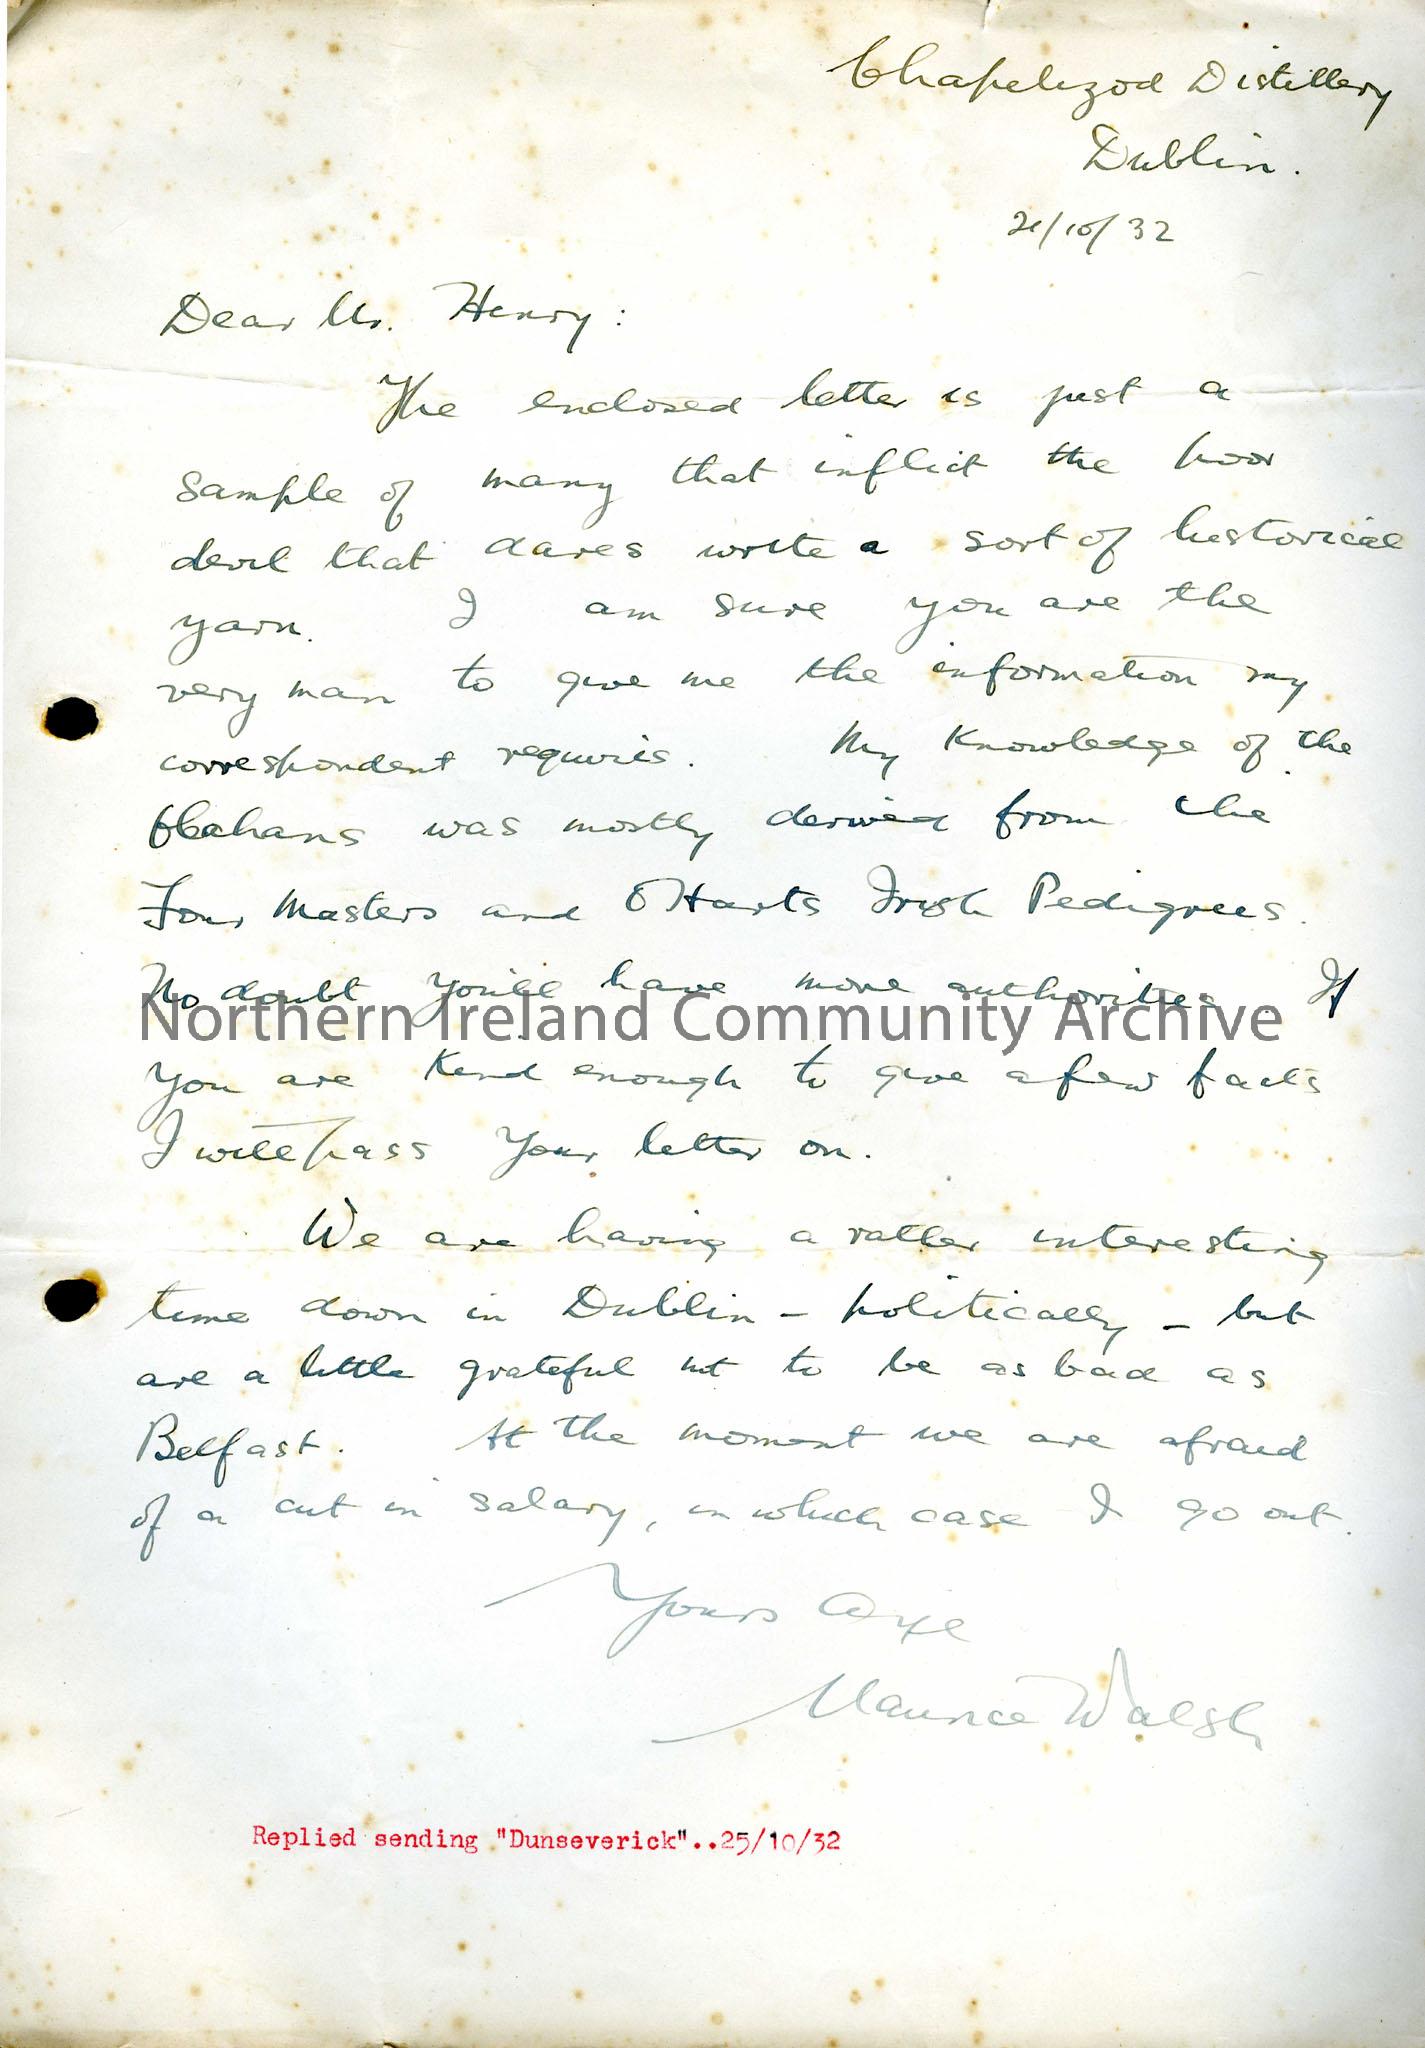 Chapelizod Distillery
Dublin.
21/10/32
Dear Mr. Henry:
The enclosed letter is just a
sample of many that inflict the poor
devil that dares write a sort of historical
yarn. I am sure you are the
very man to give me the information my
correspondent requires. My Knowledge of the
was mostly derived from the
Four Masters and O'Harts Irish Pedigrees.
No doubt you'll have more authorities. If
Northern Ireland Community Archive
you are Kind enough to give a few facts
I will pass your letter on.
We are having a rather interesting
time down in Dublin - politically - but
are a little grateful not to be as bad as
Belfast. At the moment we are afraid
of a cut in salary, in which case I go out.
Yours Aye
Maurice Walsh
Replied sending "Dunseverick"..25/10/32